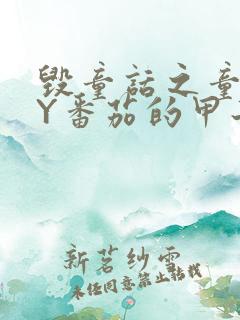 毁童话之童
Y番茄的甲
新茗纱雪
未经同意禁止转载